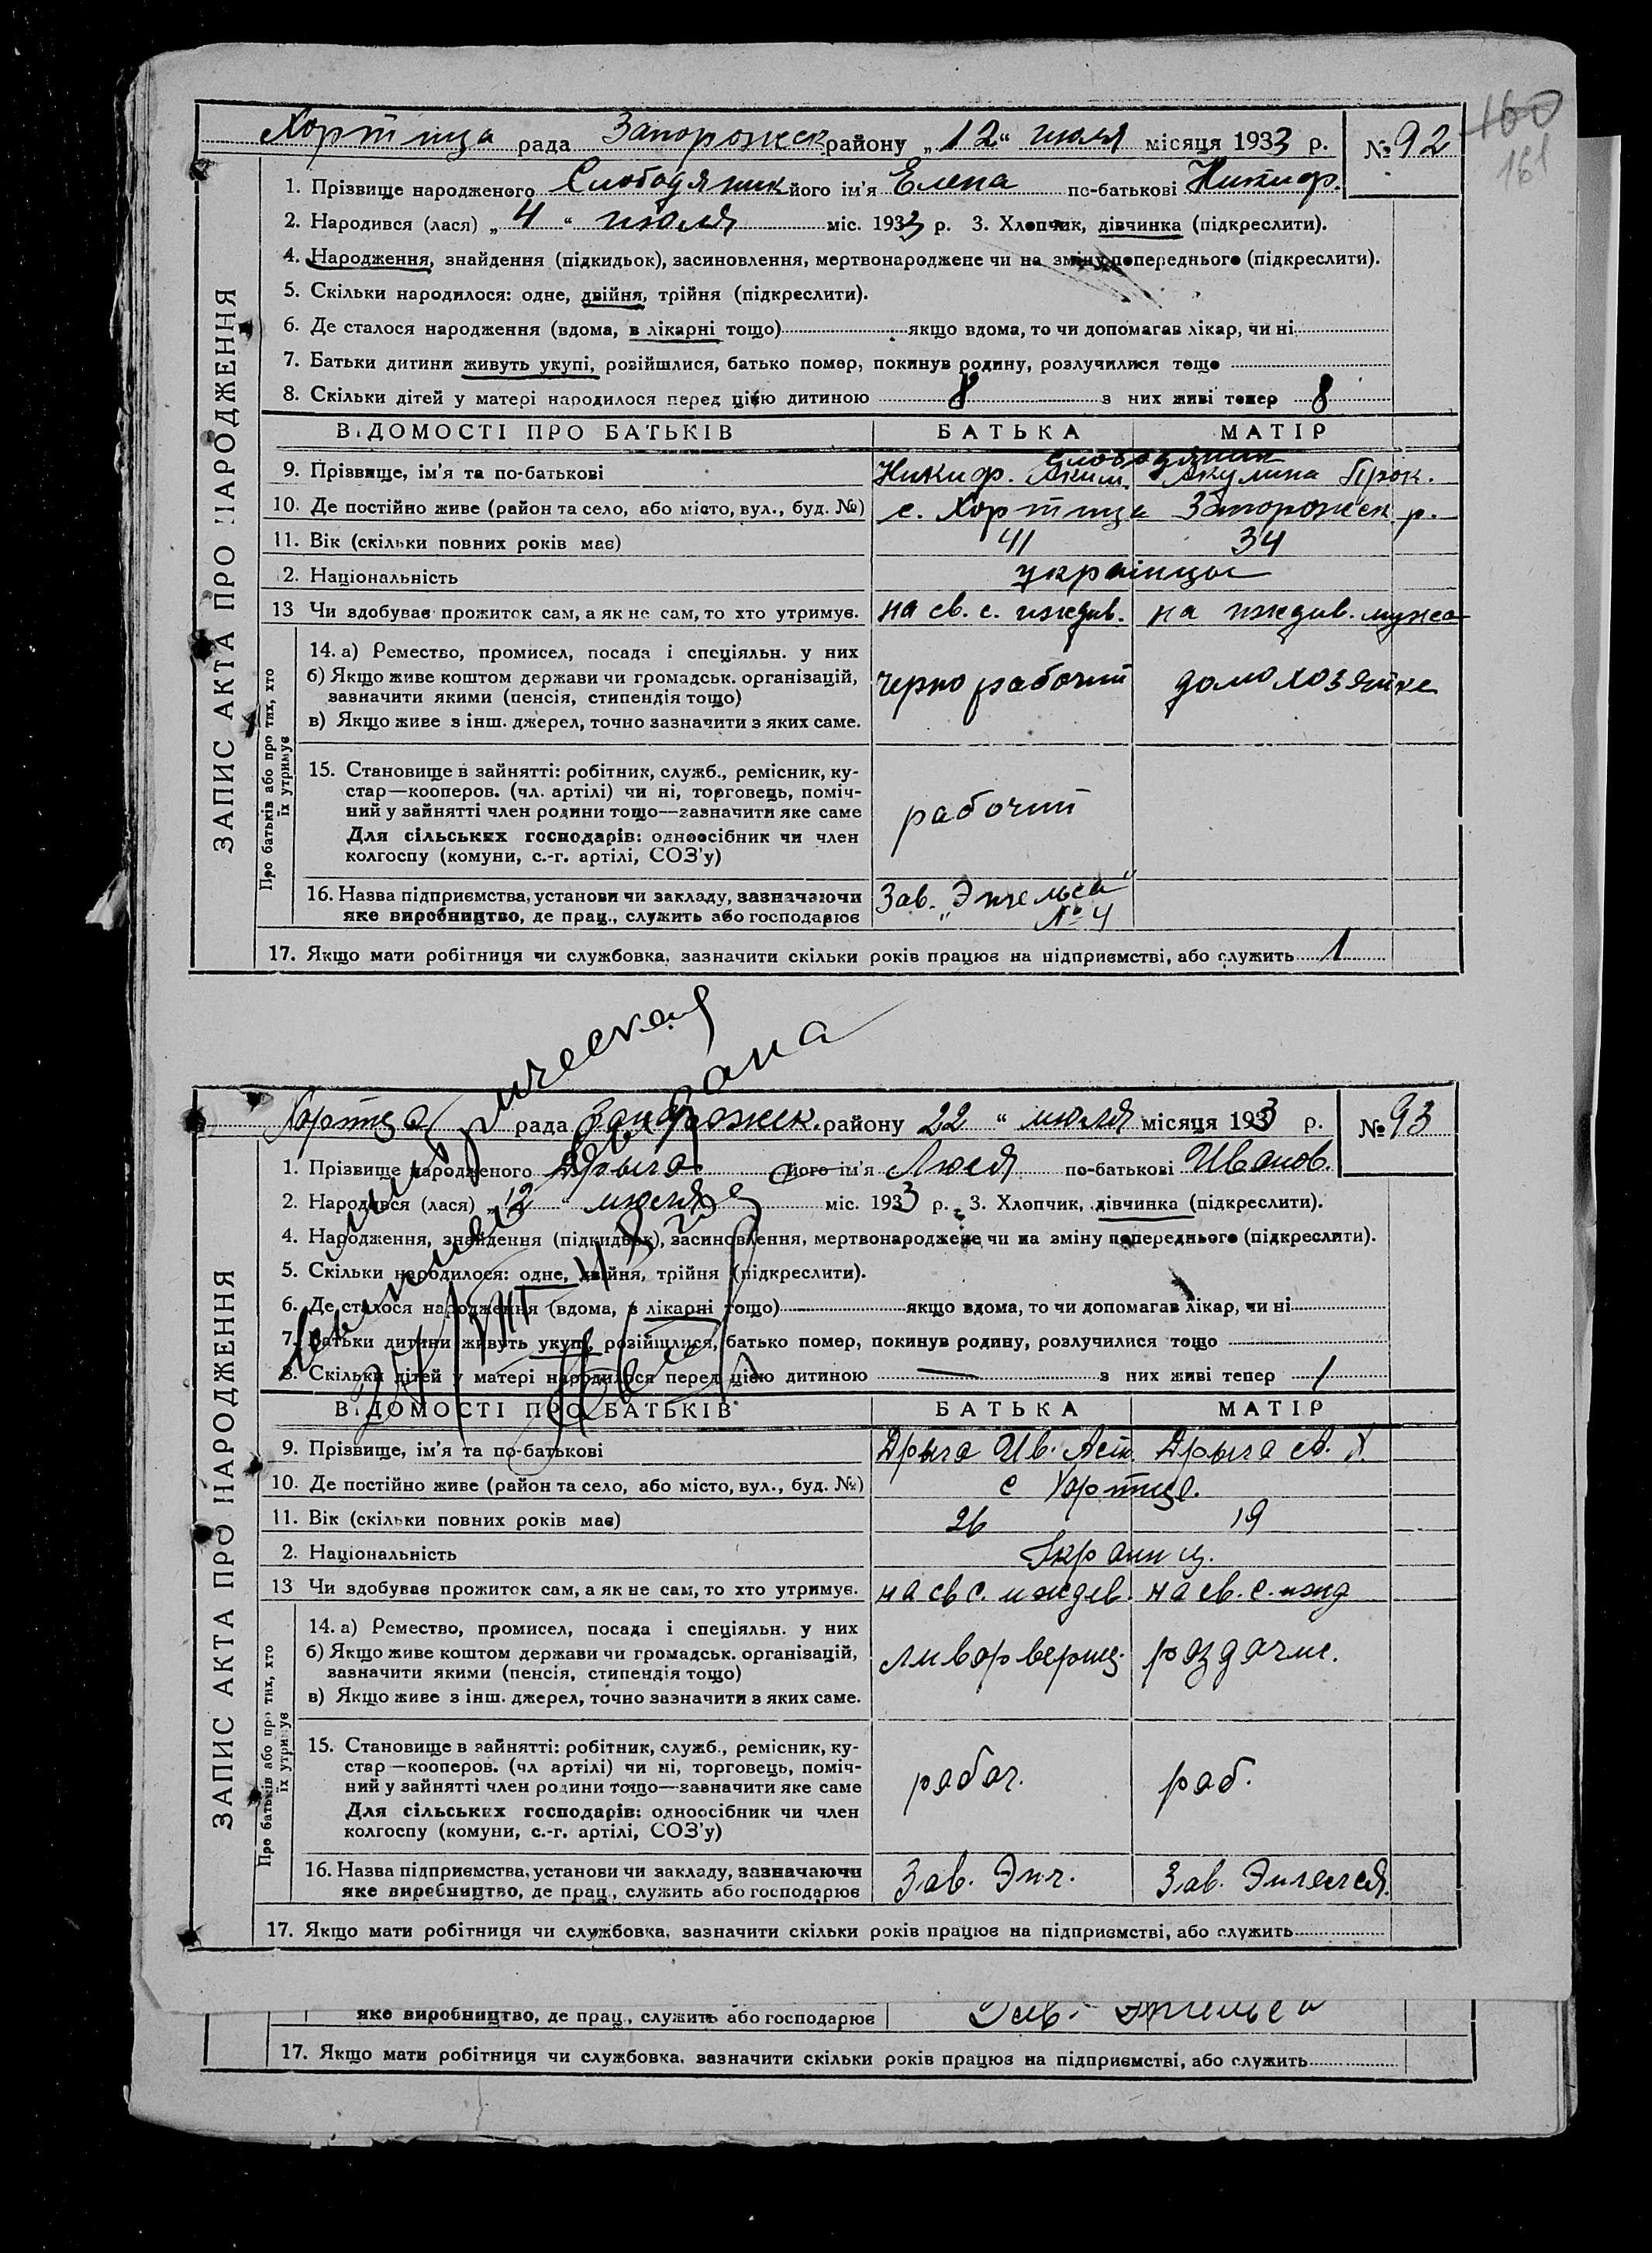 160
161
Хортица рада Запорожск району „12“ июля місяця 1933 р. № 92
1. Прізвище народженого Слободяник його ім'я Елена по-батькові Никиф.
2. Народився (лася) „4“ июля міс. 1933 р. 3. Хлопчик, дівчинка (підкреслити).
4. Народження, знайдення (підкидьок), засиновлення, мертвонароджене чи на зміну попереднього (підкреслити).
5. Скільки народилося: одне, двійня, трійня (підкреслити).
6. Де сталося народження (вдома, в лікарні тощо) якщо вдома, то чи допомагав лікар, чи ні
7. Батьки дитини живуть укупі, розійшлися, батько помер, покинув родину, розлучилися тощо
8. Скільки дітей у матері народилося перед цією дитиною 8 з них живі тепер 8
ЗАПИС АКТА ПРО НАРОДЖЕННЯ
ВІДОМОСТІ ПРО БАТЬКІВ БАТЬКА МАТІР
Слободяник
9. Прізвище, ім'я та по-батькові Никиф. Аким. Акулина Прок.
10. Де постійно живе (район та село, або місто, вул., буд. №) с. Хортица Запорожск р.
11. Вік (скільки повних років має) 41 34
2. Національність українцы
13 Чи здобуває прожиток сам, а як не сам, то хто утримує. на св. с. иждив. на иждив. мужа
Про батьків або про тих, хто
їх утримує
14. а) Ремество, промисел, посада і спеціяльн. у них
б) Якщо живе коштом держави чи громадськ. організацій,
зазначити якими (пенсія, стипендія тощо)
в) Якщо живе з інш. джерел, точно зазначити з яких саме.
чернорабочий домохозяйка
15. Становище в зайнятті: робітник, служб., ремісник, ку-
стар—кооперов. (чл. артілі) чи ні, торговець, поміч-
ний у зайнятті член родини тощо—зазначити яке саме
Для сільських господарів: одноосібник чи член
колгоспу (комуни, с.-г. артілі, СОЗ'у)
рабочий
16. Назва підприємства, установи чи закладу, зазначаючи
яке виробництво, де прац., служить або господарює
Зав. „Энгельса“
№ 4
17. Якщо мати робітниця чи службовка, зазначити скільки років працює на підприємстві, або служить 1
Хортица рада Запорожск. району 22 “ июля місяця 1933 р. № 93
1. Прізвище народженого Дрыга його ім'я Люся по-батькові Иванов.
2. Народився (лася) „12“ июля міс. 1933 р. 3. Хлопчик, дівчинка (підкреслити).
4. Народження, знайдення (підкидьок), засиновлення, мертвонароджене чи на зміну попереднього (підкреслити).
5. Скільки народилося: одне, двійня, трійня (підкреслити).
6. Де сталося народження (вдома, в лікарні тощо) якщо вдома, то чи допомагав лікар, чи ні
7. Батьки дитини живуть укупі, розійшлися, батько помер, покинув родину, розлучилися тощо
8. Скільки дітей у матері народилося перед цією дитиною — з них живі тепер 1
ЗАПИС АКТА ПРО НАРОДЖЕННЯ
ВІДОМОСТІ ПРО БАТЬКІВ БАТЬКА МАТІР
9. Прізвище, ім'я та по-батькові Дрыга Ив. Дрыга
10. Де постійно живе (район та село, або місто, вул., буд. №) с Хортица.
11. Вік (скільки повних років має) 26 19
2. Національність Украинц.
13 Чи здобуває прожиток сам, а як не сам, то хто утримує. на св с. иждев. на св. с. ижд
Про батьків або про тих, хто
їх утримує
14. а) Ремество, промисел, посада і спеціяльн. у них
б) Якщо живе коштом держави чи громадськ. організацій,
зазначити якими (пенсія, стипендія тощо)
в) Якщо живе з інш. джерел, точно зазначити з яких саме.
раздачиц.
15. Становище в зайнятті: робітник, служб., ремісник, ку-
стар—кооперов. (чл артілі) чи ні, торговець, поміч-
ний у зайнятті член родини тощо—зазначити яке саме
Для сільських господарів: одноосібник чи член
колгоспу (комуни, с.-г. артілі, СОЗ'у)
рабоч. раб.
16. Назва підприємства, установи чи закладу, зазначаючи
яке виробництво, де прац., служить або господарює
Зав. Энг. Зав. Энгельса.
17. Якщо мати робітниця чи службовка, зазначити скільки років працює на підприємстві, або служить
яке виробництво, де прац., служить або господарює Зав. Энгельса
17. Якщо мати робітниця чи службовка, зазначити скільки років працює на підприємстві, або служить